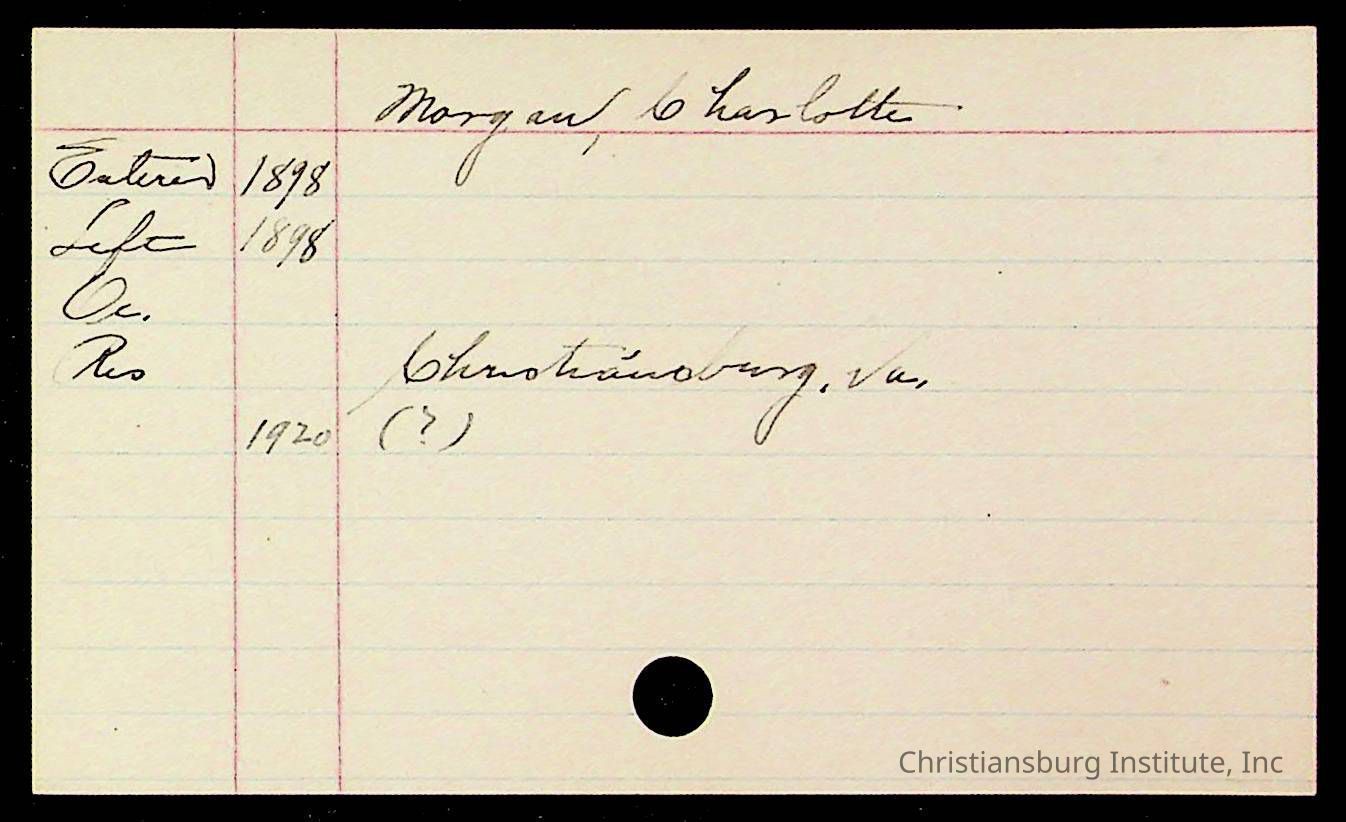 Morgan, Charlotte
Entered 1898
Left 1898
Oc.
Res Christiansburg, Va.
1920 (?)
Christiansburg Institute, Inc